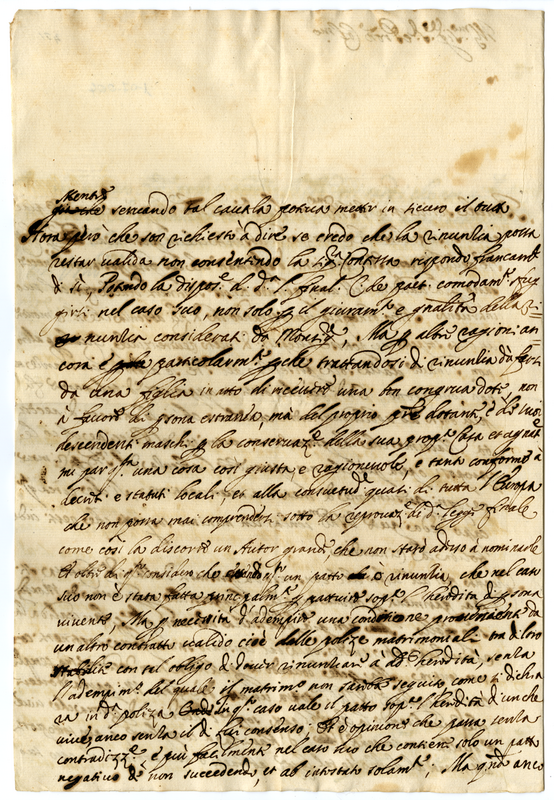 Mentre
servando tal cautela potria metter in sicuro il tutto
Hora però che son richiesto à dire se credo che la rinuntia possa
restar valida non consentendo la Sig.ra Contessa rispondo francam.te
di sì, Potendo la dispos.e di d.a l. final. C. de pact. comodam.te sfug
girsi nel caso suo, non solo p il giuram.to e qualità della ri=
nuntia considerati da ; Ma p altre ragioni an
cora e particolarm.te pche trattandosi di rinuntia da farsi
da una figlia in atto di ricevere una ben congrua dote, non
à favore di psona estranea, mà del proprio dotante, e de suoi
descendenti maschi p la conservaz.e della sua prop.a Casa et agnat.e
mi par una cosa così giusta, e ragionevole, e tanto conforme à
decreti e statuti locali, et alla consuetud.e quasi di tutta l'Europa
che non possa mai comprendersi sotto la reprovaz.e di d.a legge finale
come così la discorre un Autor grande che non starò adesso à nominarle
Et oltre di q.to considero che un patto ò rinuntia, che nel caso
suo non è stata fatta principalm.te p pattuire sop.a l'heredità di psona
vivente, Ma p necessità d'adempire una condicione proveniente da
un altro contratto valido cioè delle polize matrimoniali tra di loro
stabilite con tal obligo di dover rinuntiare à d.a heredità, senza
l'adempim.to del quale il matrim.o non saria seguito come si dichia
ra in d.a poliza In q.to caso vale il patto sop.a l'heredità di un che
vive anco senza il di lui consenso: Et è opinione che passa senza
contradiz.e, e più facilmente nel caso suo che contiene solo un patto
negativo de non succedendo, et ab intestato solam.te; Ma q.ndo anco